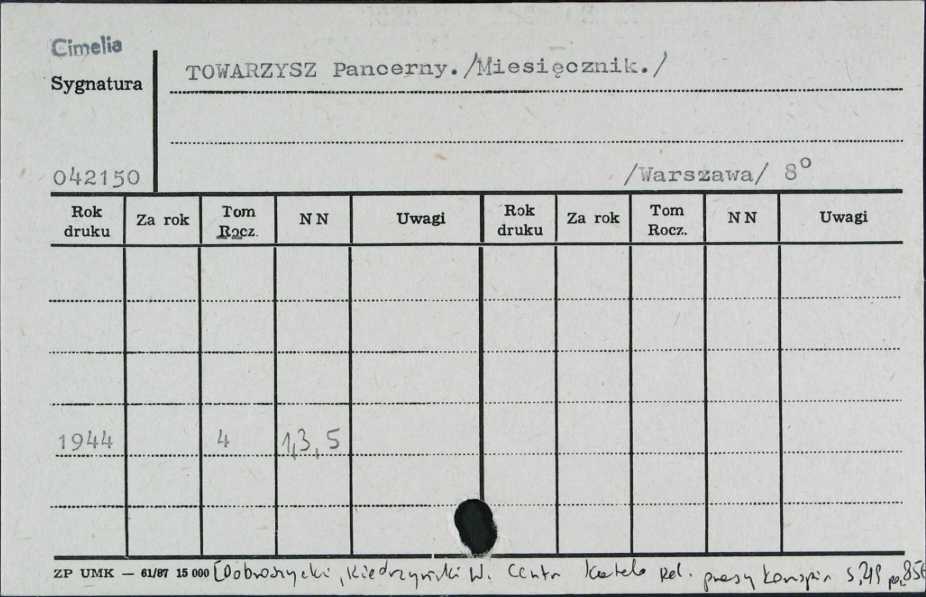 Cimelia
Sygnatura
TOWARZYSZ Pancerny./Miesięcznik./
042150
/Warszawa/ 8°
Rok druku Za rok Tom Rocz. N N Uwagi Rok druku Za rok Tom Rocz. N N Uwagi
1944 4 1,3,5
ZP UMK — 61/87 15 000 [Dobroszycki, Kiedrzyński W. Centr Katalo prasy konspir s,249 po,856